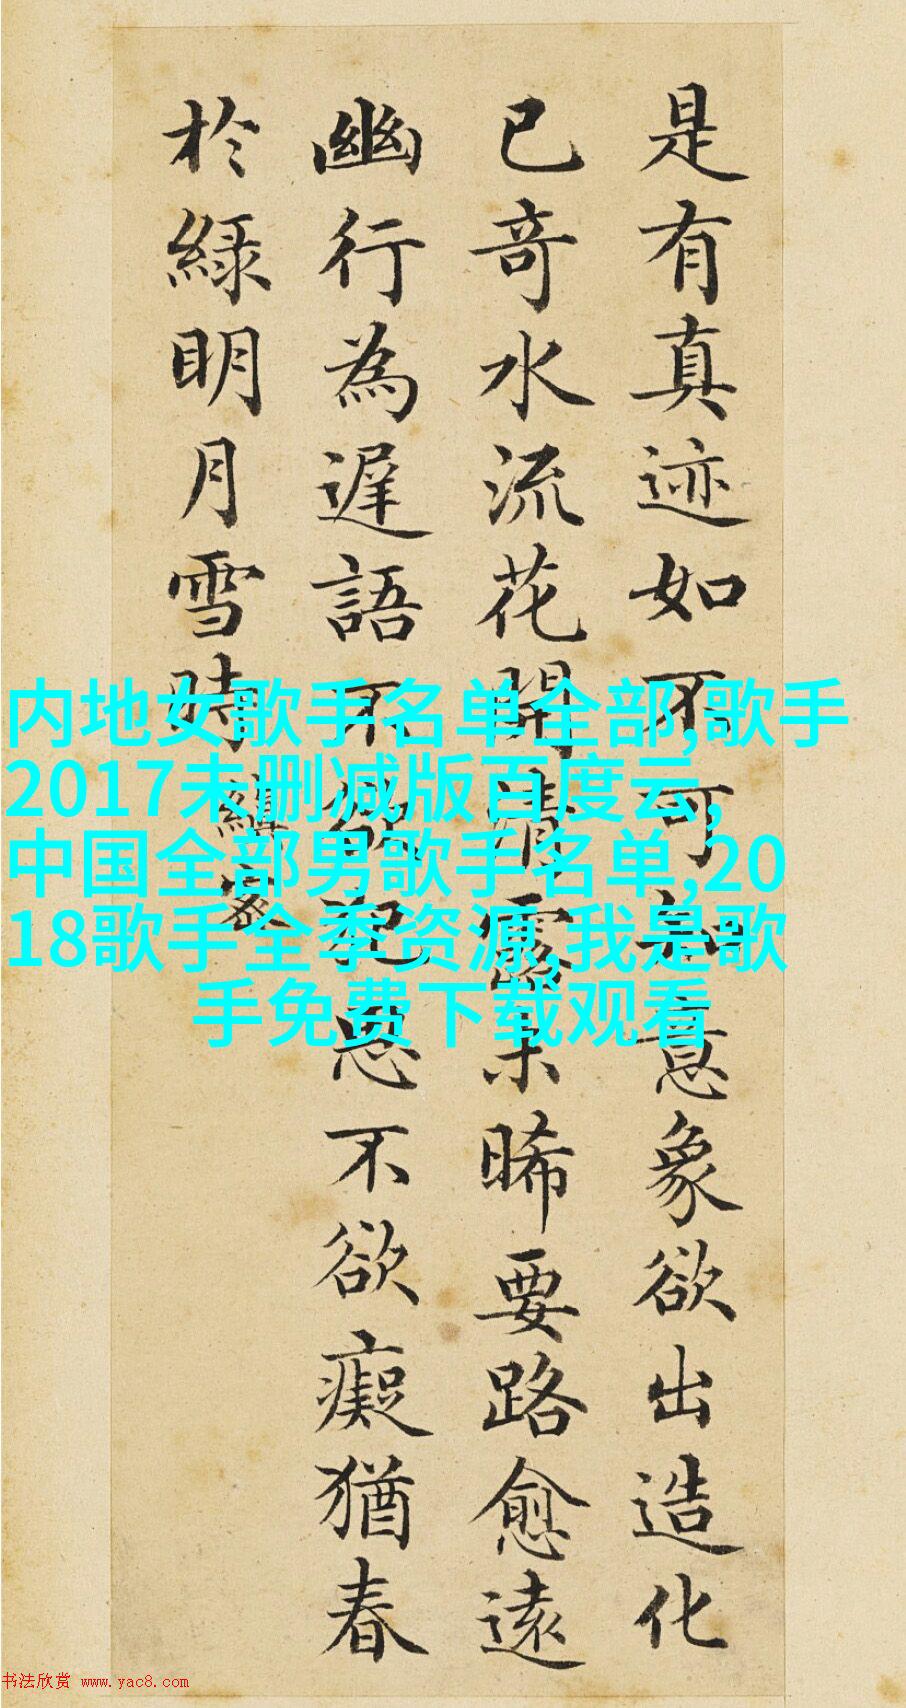 是有真迹如不可知意象欲出造化
已奇水流花開清露未晞要路愈遠
幽行為遲語不欲犯思不欲癡猶春
於綠明月雪時
縝密
内地女歌手名单全部,歌手
2017未删减版百度云,
中国全部男歌手名单,20
18歌手全季资源,我是歌
手免费下载观看
书法欣赏 www.yac8.com